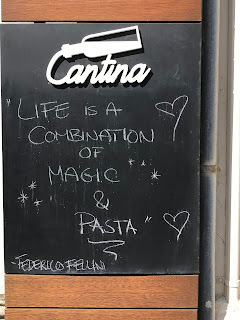 Cantina
"LIFE IS A
COMBINATION
OF
MAGIC
&
PASTA"
-FEDERICO FELLINI